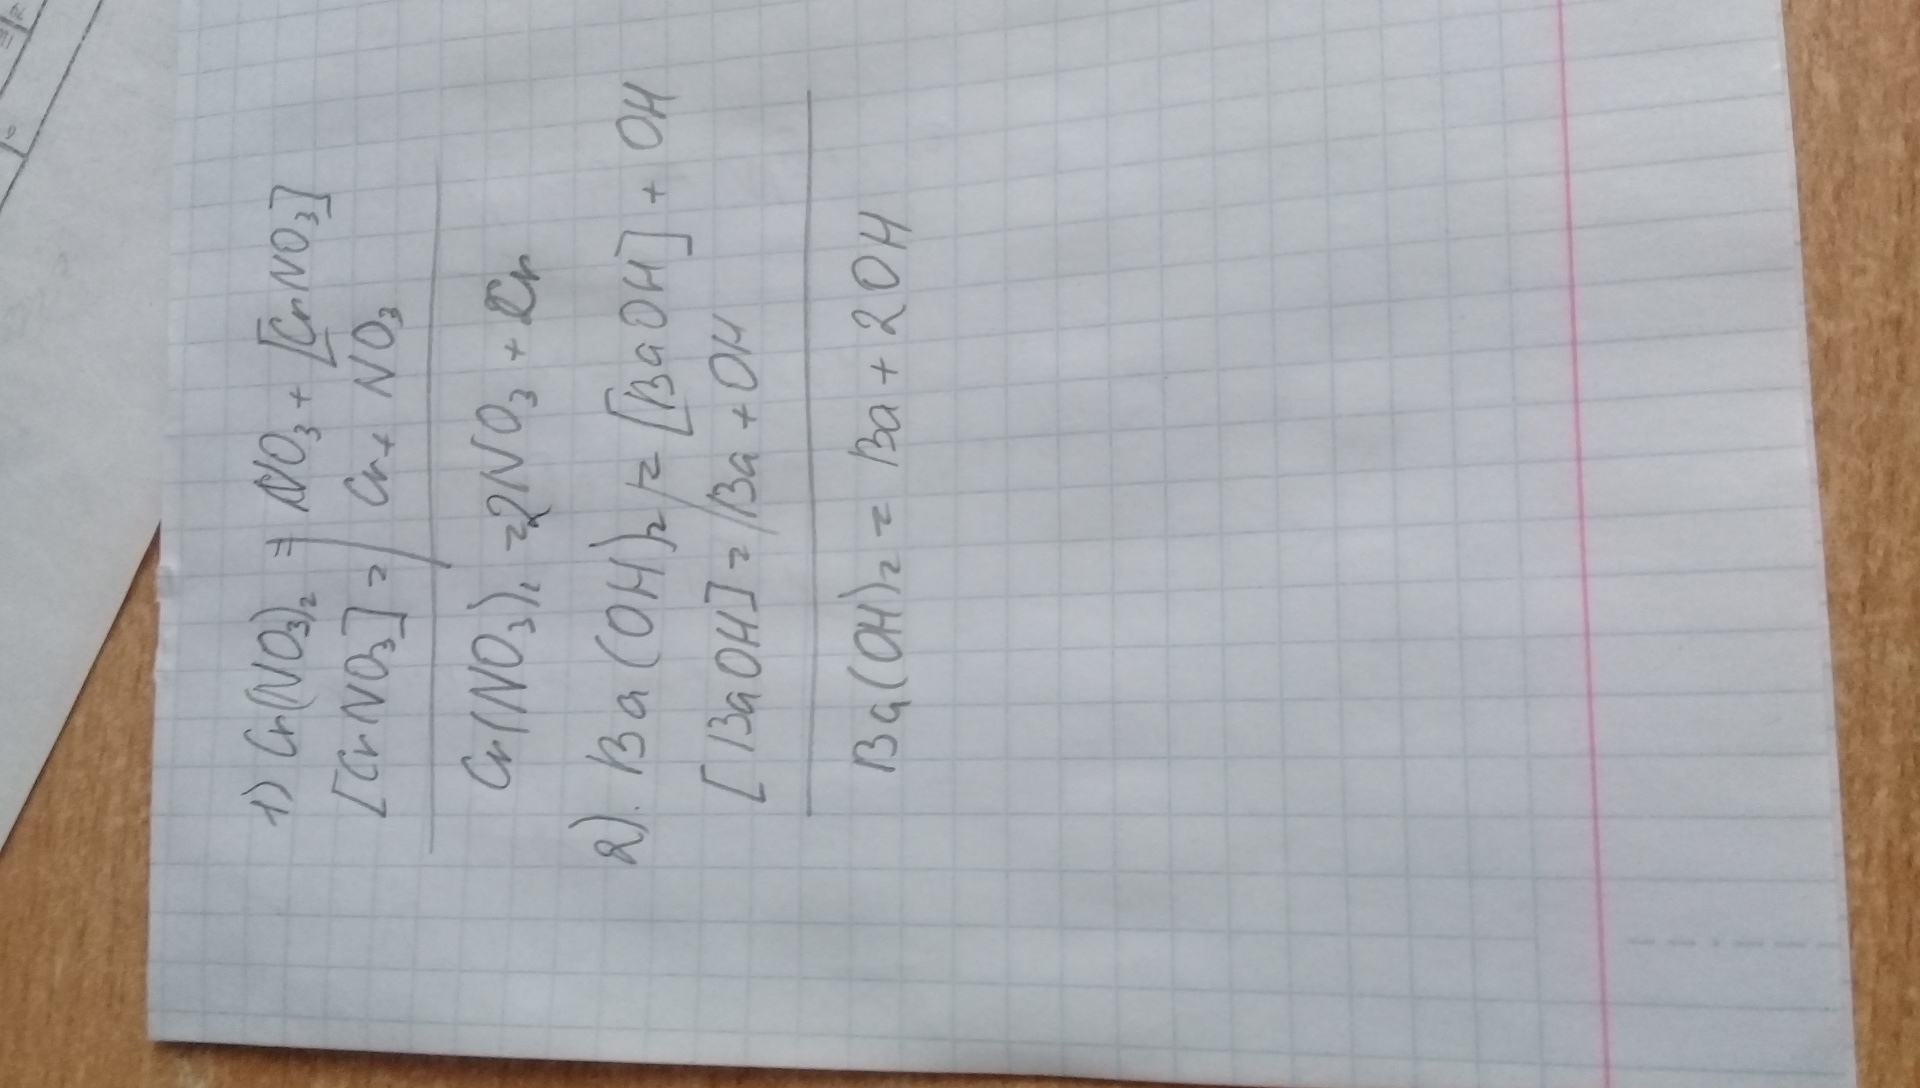 1) Cr(NO3)2 = NO3 + [CrNO3]
[CrNO3] = Cr + NO3
Cr(NO3)2 = 2NO3 + Cr
2). Ba(OH)2 = [BaOH] + OH
[BaOH] = Ba + OH
Ba(OH)2 = Ba + 2OH